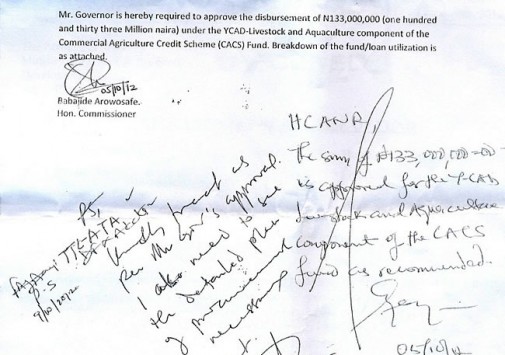 Mr. Governor is hereby required to approve the disbursement of N133,000,000 (one hundred
and thirty three Million naira) under the YCAD-Livestock and Aquaculture component of the
Commercial Agriculture Credit Scheme (CACS) Fund. Breakdown of the fund/loan utilization is
as attached.
05/10/12
Babajide Arowosafe.
Hon. Commissioner
HCANR,
The sum of ₦133,000,000=00
is approved for the Y-CAD
Livestock and Aquaculture
component of the CACS
fund as recommended.
05/10/12
PS,
Kindly treat as
per Mr Gov's approval.
I also need to see
the detailed plan
of
necessary
P.S
9/10/2012